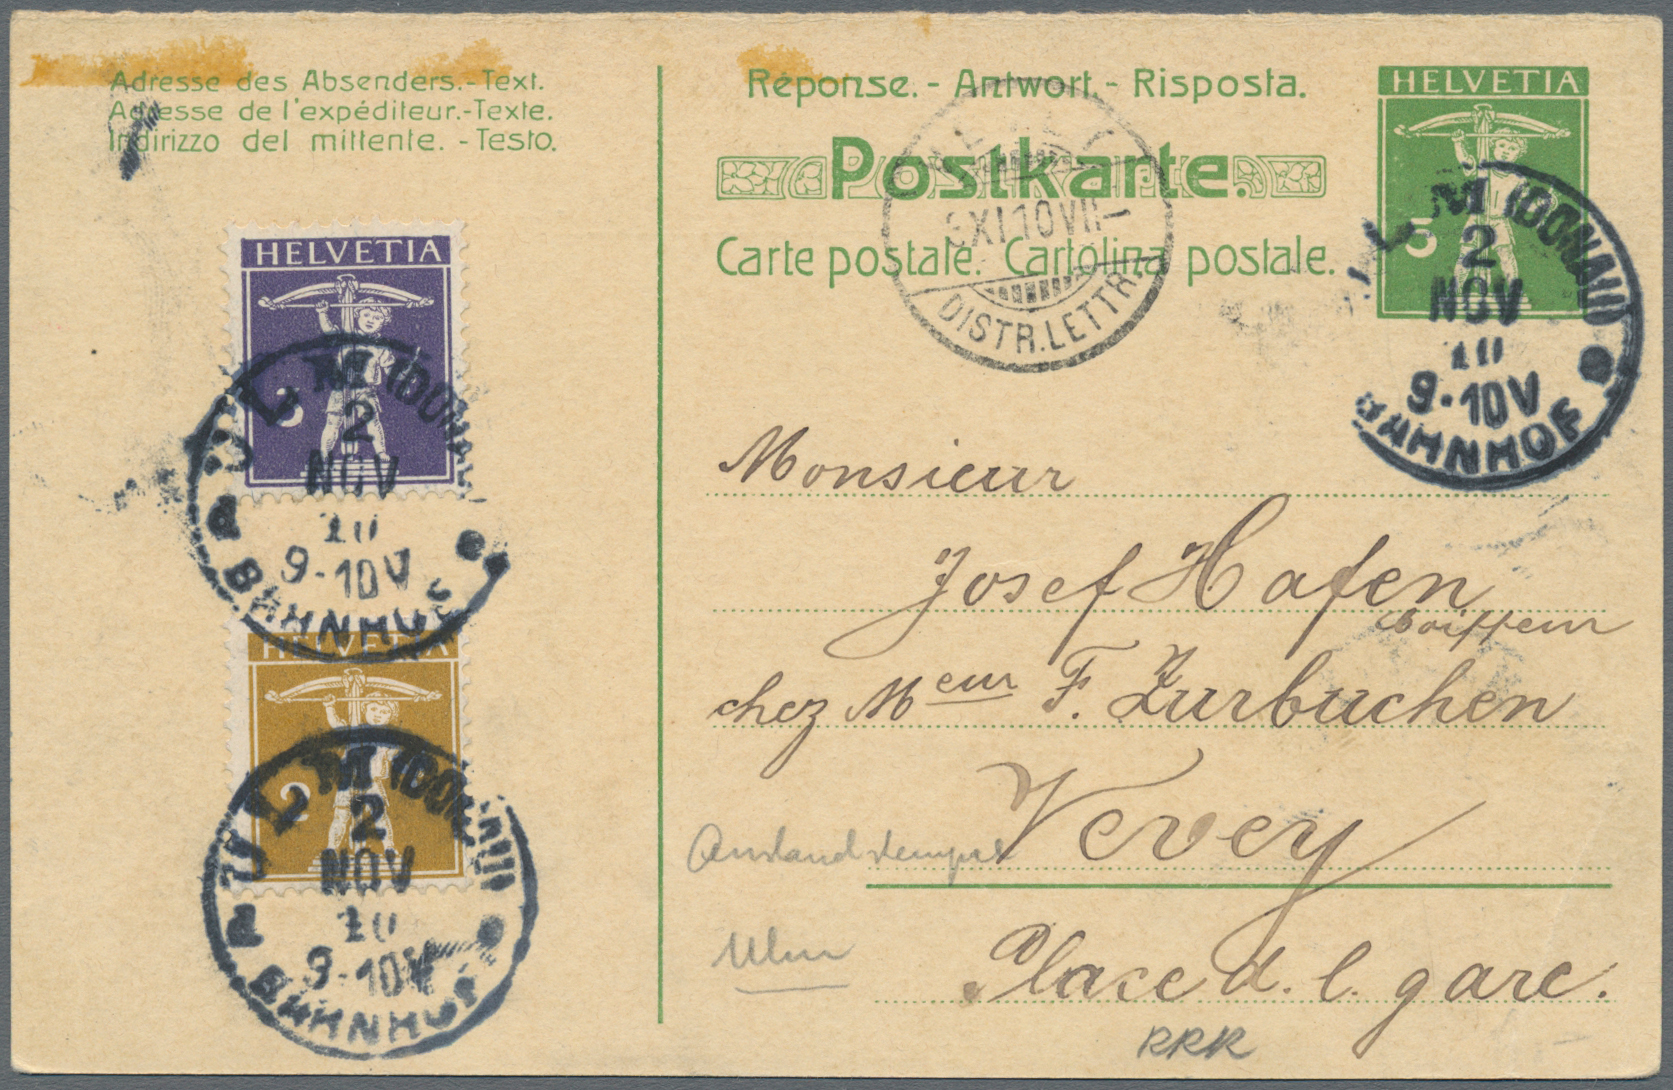 Adresse des Absenders.-Text.
Adresse de l'expéditeur.-Texte.
Indirizzo del mittente. - Testo.
Réponse. - Antwort. - Risposta.
Postkarte.
Carte postale. Cartolina postale.
HELVETIA
5
ULM (DONAU)
2
NOV
10
9-10V
BAHNHOF
VEVEY
XI.10 VII-
DISTR.LETTR.
HELVETIA
3
ULM (DONAU)
2
NOV
10
9-10V
d BAHNHOF
HELVETIA
2
ULM (DONAU)
2
NOV
10
9-10V
d BAHNHOF
Monsieur
Josef Hafen
Coiffeur
chez Meur F. Zurbuchen
Vevey
Place d. l. gare.
Auslandstempel
Ulm
RRR